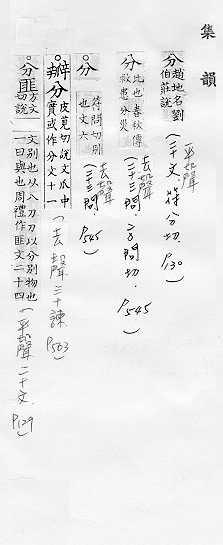 集韻
分趙地名劉伯莊說
平聲
(二十文．符分切．P.130)
分
比也春秋傳救患分災
去聲
(二十三問．方問切．P.545)
分
符問切別也文六
去聲
(二十三問．P.545)
辬
皮莧切說文瓜中實或作分文十一
(去聲 三十諫 P.563)
分匪
方文切說文別也从八刀刀以分別物也一曰與也周禮作匪文二十四
(平聲 二十文．P.129)